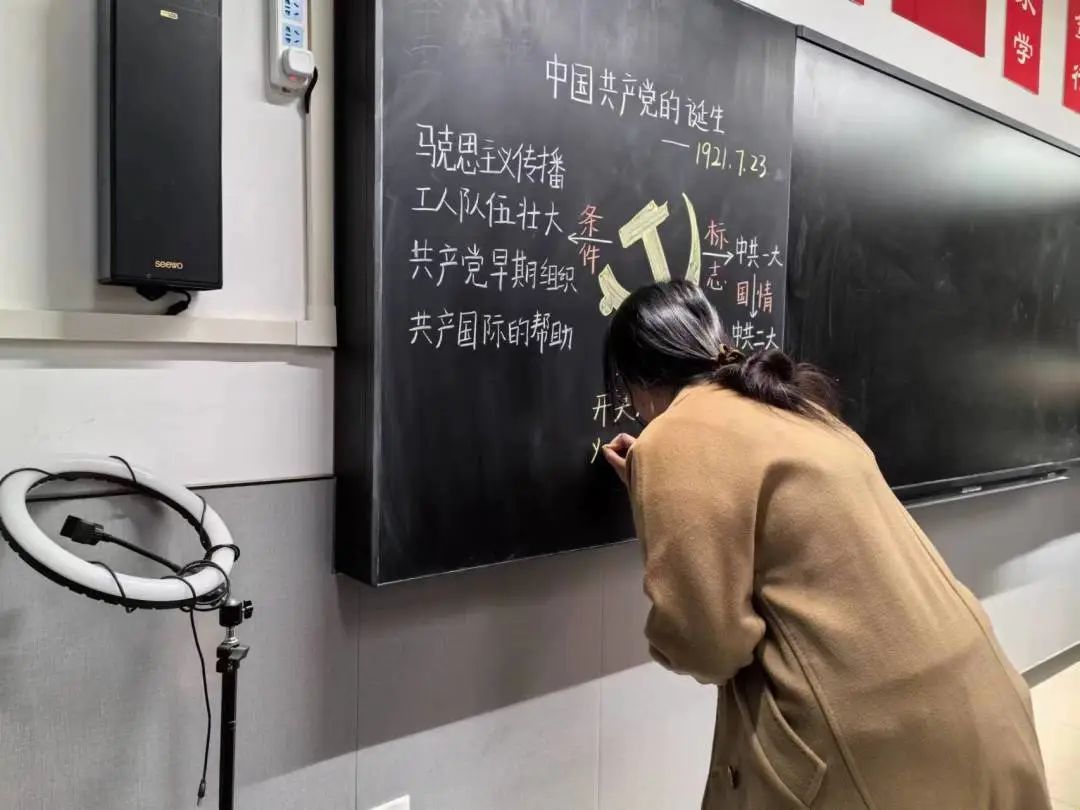 中国共产党的诞生
—1921.7.23
马克思主义传播
工人队伍壮大
共产党早期组织
共产国际的帮助
条件
标志
中共一大
国情
中共二大
开天
seewo
学